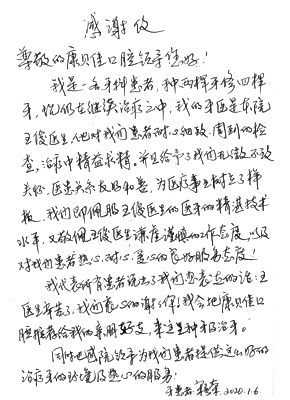 感谢信
尊敬的康贝佳口腔领导您好！
我是一名牙科患者，种两样牙修四样
牙，現仍在继续治疗之中，我的牙医是东院
王俊医生，他对我们患者耐心细致，周到的检
查，治疗中精益求精。并且给予了我们无微不致
关怀，医患关系友好和善，为医疗事业树立了样
板，我们即佩服王俊医生的医牙的精湛技术
水平，又敬佩王俊医生谦虚谨慎的工作态度，以及
对我们患者热心、耐心、善心的良好服务态度！
我代表所有患者说出了我们想表达的话：王
医生辛苦了，我们衷心的谢谢你！我会把康贝佳口
腔推荐给我的亲朋好友，来这里种牙及治牙。
同时也感谢院领导为我们患者提供这么好的
治疗牙的环境及热心的服务！
牙患者 2020.1.6